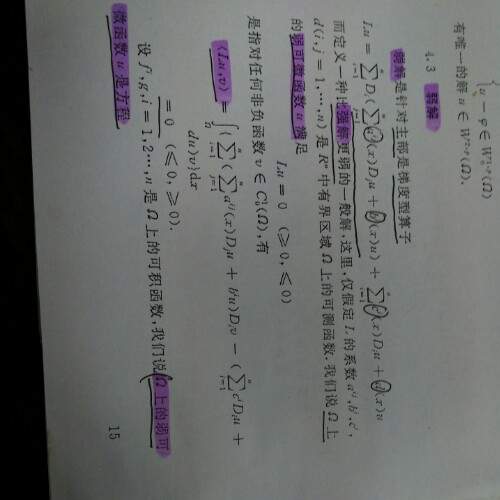 { u − φ ∈ W₀¹,ᵖ(Ω)
有唯一的解 u ∈ W²,ᵖ(Ω).
4.3 弱解
弱解是针对主部是梯度型算子
Lu = Σⁿᵢ₌₁ Dᵢ(Σⁿⱼ₌₁ aⁱʲ(x)Dⱼu + bⁱ(x)u) + Σⁿᵢ₌₁ cⁱ(x)Dᵢu + d(x)u
而定义一种比强解更弱的一般解. 这里, 仅假定 L 的系数 aⁱʲ, bⁱ, cⁱ,
d(i,j = 1,⋯,n) 是 Rⁿ 中有界区域 Ω 上的可测函数. 我们说 Ω 上
的弱可微函数 u 满足
Lu = 0 (≥ 0, ≤ 0)
是指对任何非负函数 v ∈ C₀¹(Ω), 有
⟨Lu,v⟩ = ∫Ω{Σⁿᵢ₌₁(Σⁿⱼ₌₁ aⁱʲ(x)Dⱼu + bⁱu)Dᵢv − (Σⁿᵢ₌₁ cⁱDᵢu +
du)v}dx
= 0 (≤ 0, ≥ 0).
设 fⁱ, g, i = 1,2⋯,n 是 Ω 上的可积函数, 我们说 Ω 上的弱可
微函数 u 是方程
15